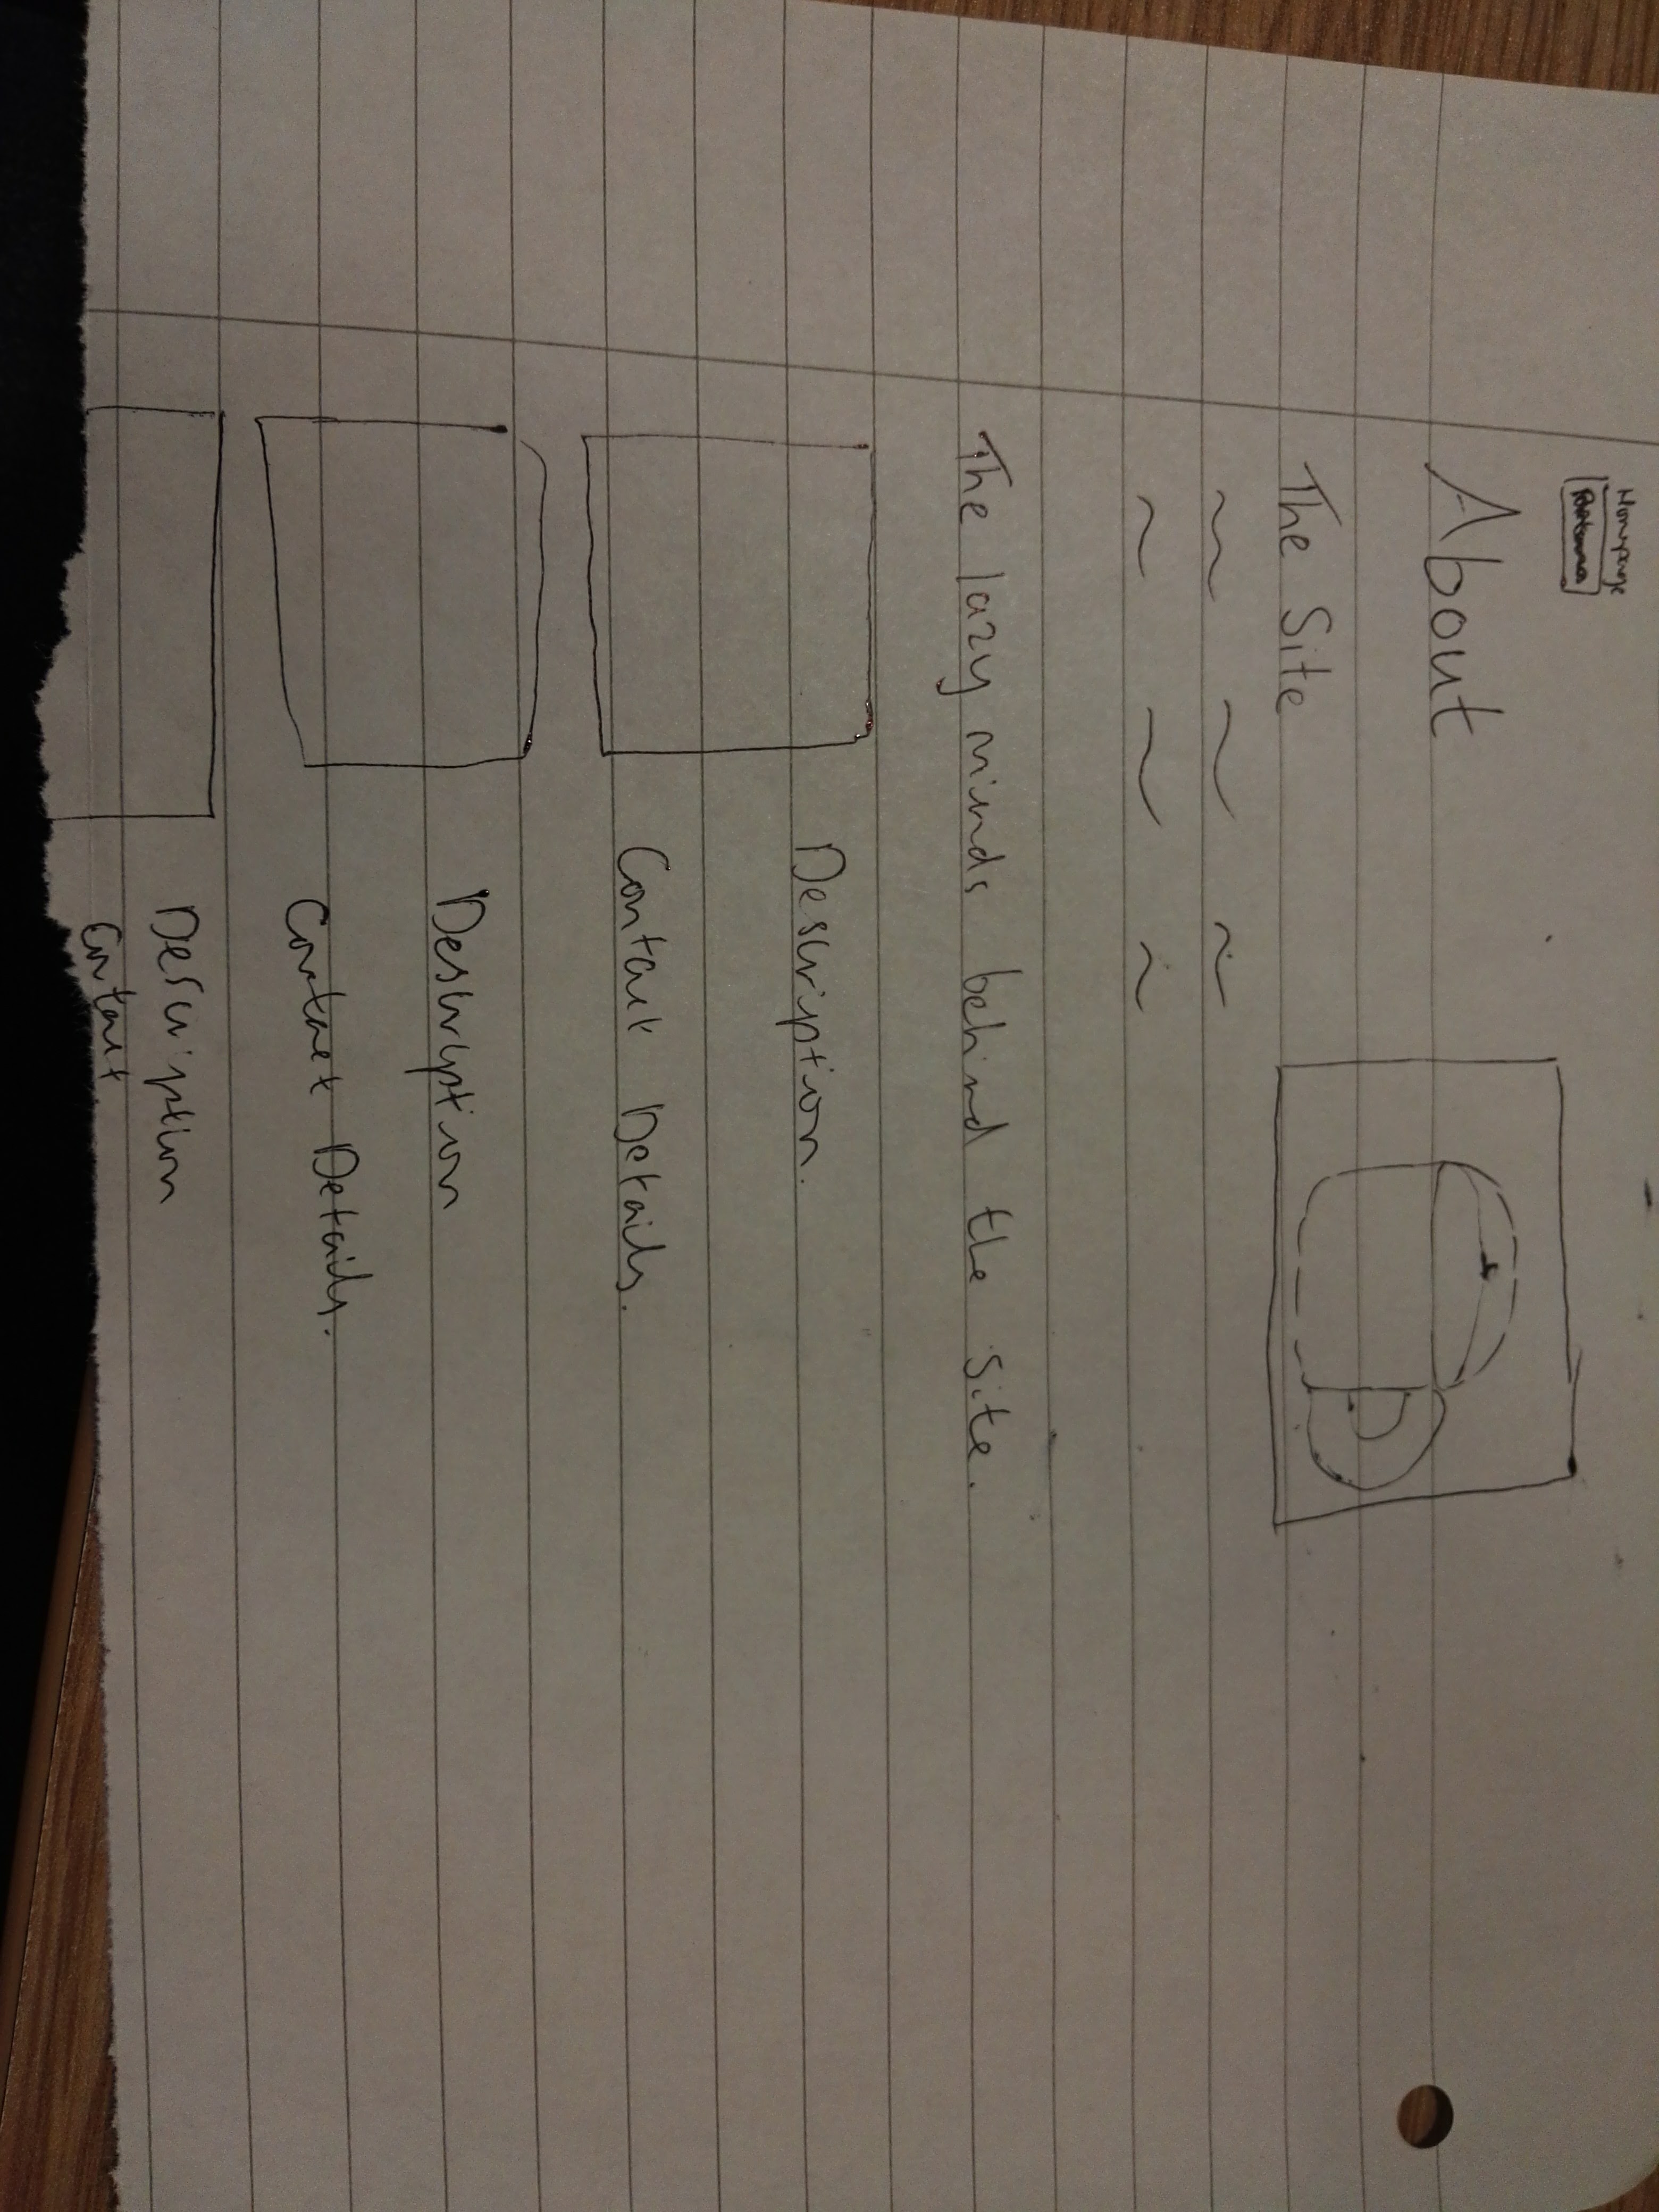 Homepage
About
The Site
The lazy minds behind the site.
Description.
Contact Details.
Description
Contact Details.
Description
Contact